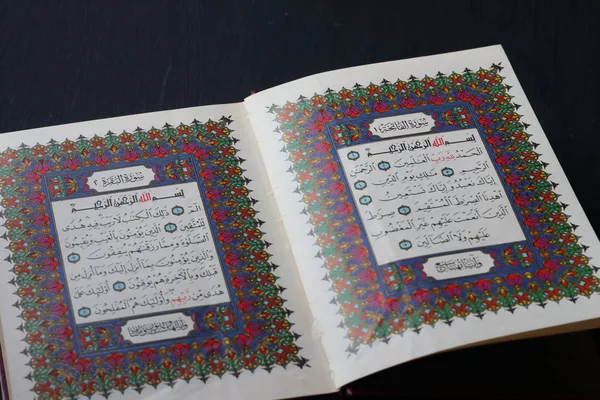 سُورَةُ الْفَاتِحَةِ ١
بِسْمِ اللَّهِ الرَّحْمَٰنِ الرَّحِيمِ
الْحَمْدُ لِلَّهِ رَبِّ الْعَٰلَمِينَ الرَّحْمَٰنِ
الرَّحِيمِ مَٰلِكِ يَوْمِ الدِّينِ
إِيَّاكَ نَعْبُدُ وَإِيَّاكَ نَسْتَعِينُ
اهْدِنَا الصِّرَٰطَ الْمُسْتَقِيمَ صِرَٰطَ
الَّذِينَ أَنْعَمْتَ عَلَيْهِمْ غَيْرِ الْمَغْضُوبِ
عَلَيْهِمْ وَلَا الضَّالِّينَ
سُورَةُ الْبَقَرَةِ ٢
بِسْمِ اللَّهِ الرَّحْمَٰنِ الرَّحِيمِ
الٓمٓ ذَٰلِكَ الْكِتَٰبُ لَا رَيْبَ فِيهِ هُدًى
لِلْمُتَّقِينَ الَّذِينَ يُؤْمِنُونَ بِالْغَيْبِ وَيُقِيمُونَ
الصَّلَوٰةَ وَمِمَّا رَزَقْنَٰهُمْ يُنْفِقُونَ
وَالَّذِينَ يُؤْمِنُونَ بِمَا أُنْزِلَ إِلَيْكَ وَمَا أُنْزِلَ مِنْ
قَبْلِكَ وَبِالْآخِرَةِ هُمْ يُوقِنُونَ أُولَٰئِكَ عَلَىٰ
هُدًى مِنْ رَبِّهِمْ وَأُولَٰئِكَ هُمُ الْمُفْلِحُونَ